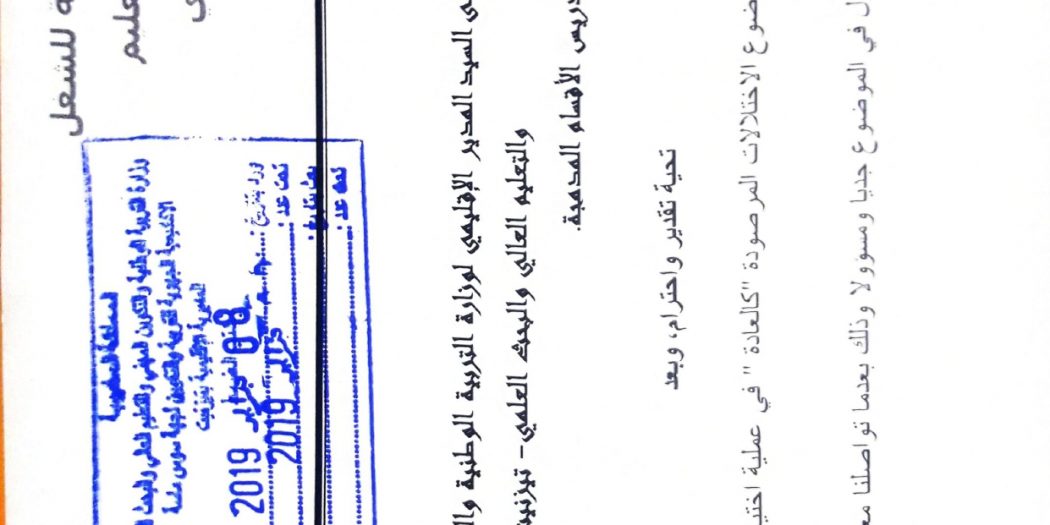 ة للشغل
عليم
المملكة المغربية
وزارة التربية الوطنية والتكوين المهني والتعليم العالي والبحث
الأكاديمية الجهوية للتربية والتكوين لجهة سوس ماسة
المديرية الإقليمية بتيزنيت
08 فبراير 2019
ورد بتاريخ:
فبراير 2019
تحت عدد:
بعث بتاريخ:
تحت عدد:
ى السيد المدير الإقليمي لوزارة التربية الوطنية وال
والتعليم العالي والبحث العلمي - تيزنيت
دريس الأقسام المدمجة.
تحية تقدير واحترام، وبعد
ضوع الاختلالات المرصودة "كالعادة" في عملية اختي
ل في الموضوع جديا ومسؤولا وذلك بعدما تواصلنا مع